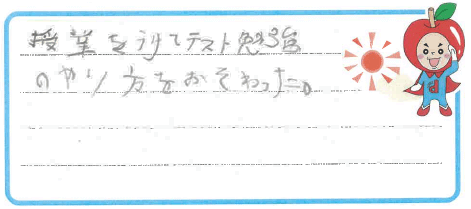 授業をうけてテスト勉強
のやり方をおそわった。